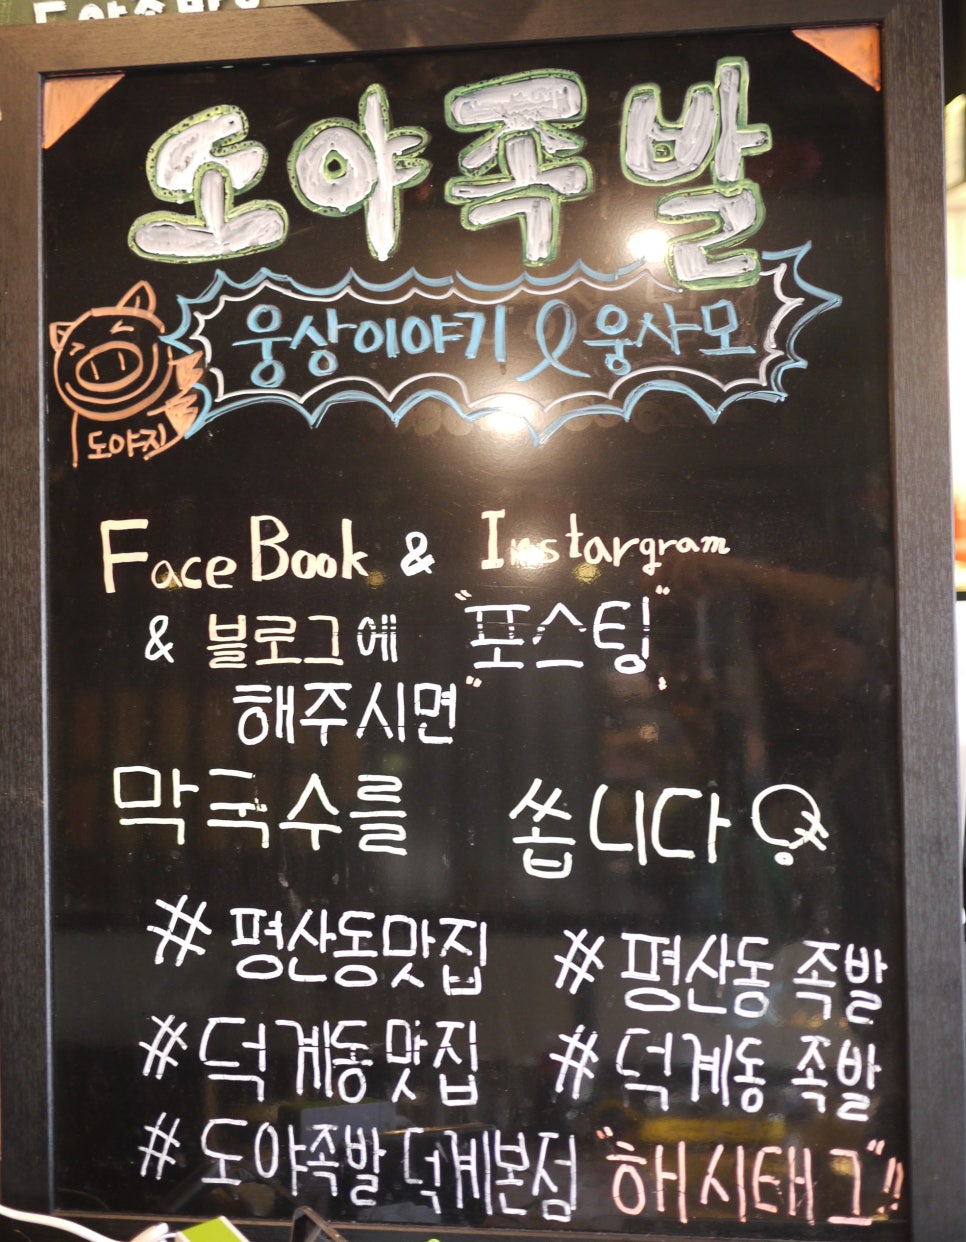 도야족발
웅상이야기 & 웅사모
도야지
FaceBook & Instargram
& 블로그에 "포스팅"
해주시면"
막국수를 쏩니다
#평산동맛집 #평산동 족발
#덕계동맛집 #덕계동 족발
#도야족발 덕계본점 "해시태그"!!